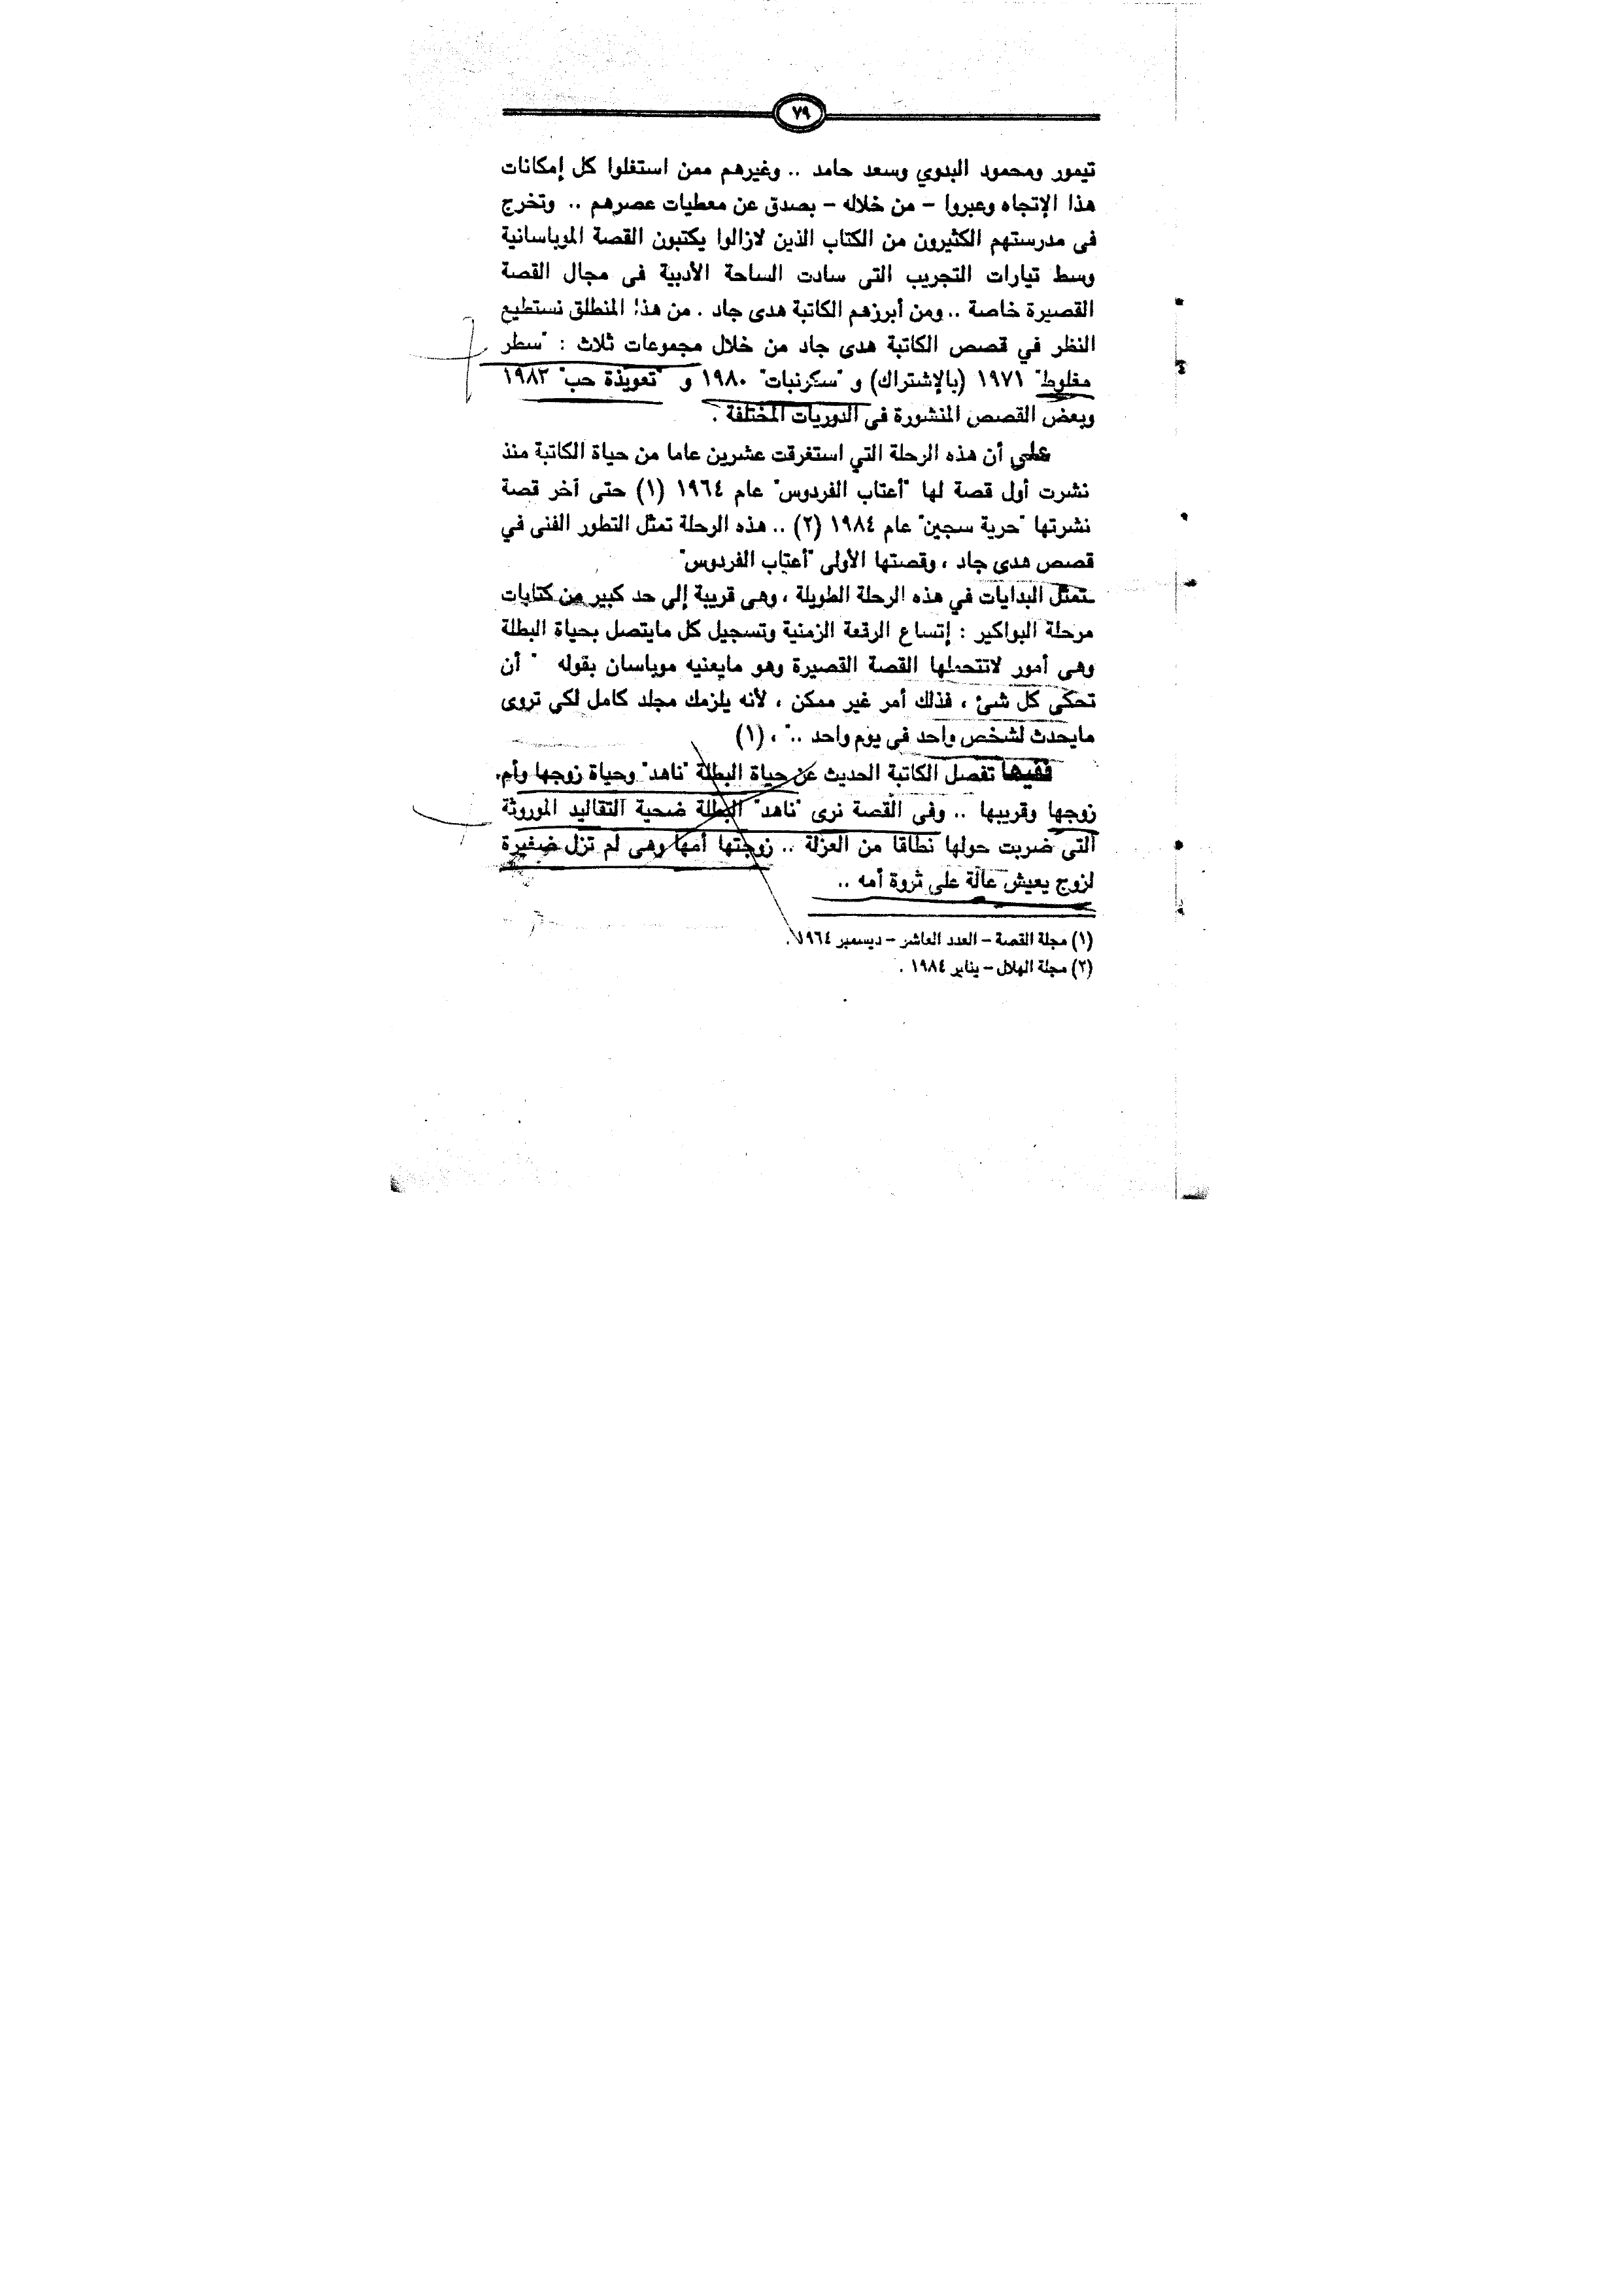 ٧٩
تيمور ومحمود البدوي وسعد حامد .. وغيرهم ممن استغلوا كل إمكانات
هذا الإتجاه وعبروا – من خلاله – بصدق عن معطيات عصرهم .. وتخرج
فى مدرستهم الكثيرون من الكتاب الذين لازالوا يكتبون القصة الموباسانية
وسط تيارات التجريب التى سادت الساحة الأدبية فى مجال القصة
القصيرة خاصة .. ومن أبرزهم الكاتبة هدى جاد . من هذا المنطلق نستطيع
النظر في قصص الكاتبة هدى جاد من خلال مجموعات ثلاث : "سطر
مغلوط" ١٩٧١ (بالإشتراك) و "سكرنبات" ١٩٨٠ و "تعويذة حب" ١٩٨٢
وبعض القصص المنشورة فى الدوريات المختلفة .
على أن هذه الرحلة التي استغرقت عشرين عاما من حياة الكاتبة منذ
نشرت أول قصة لها "أعتاب الفردوس" عام ١٩٦٤ (١) حتى آخر قصة
نشرتها "حرية سجين" عام ١٩٨٤ (٢) .. هذه الرحلة تمثل التطور الفنى في
قصص هدى جاد ، وقصتها الأولى "أعتاب الفردوس"
تمثل البدايات في هذه الرحلة الطويلة ، وهى قريبة إلى حد كبير من كتابات
مرحلة البواكير : إتساع الرقعة الزمنية وتسجيل كل مايتصل بحياة البطلة
وهى أمور لاتتحملها القصة القصيرة وهو مايعنيه موباسان بقوله " أن
تحكى كل شئ ، فذلك أمر غير ممكن ، لأنه يلزمك مجلد كامل لكى تروى
مايحدث لشخص واحد فى يوم واحد .." ، (١)
ففيها تفصل الكاتبة الحديث عن حياة البطلة "ناهد" وحياة زوجها وأم.
زوجها وقريبها .. وفى القصة نرى "ناهد" البطلة ضحية التقاليد الموروثة
التى ضربت حولها نطاقا من العزلة .. زوجتها أمها وهى لم تزل صغيرة
لزوج يعيش عالة على ثروة أمه ..
(١) مجلة القصة – العدد العاشر – ديسمبر ١٩٦٤ .
(٢) مجلة الهلال – يناير ١٩٨٤ .